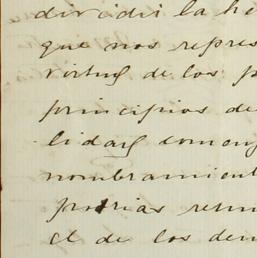 dividir la he
que nos repres
virtud de los p
principios de
lidad como
nombramient
patrias reun
el de los dem